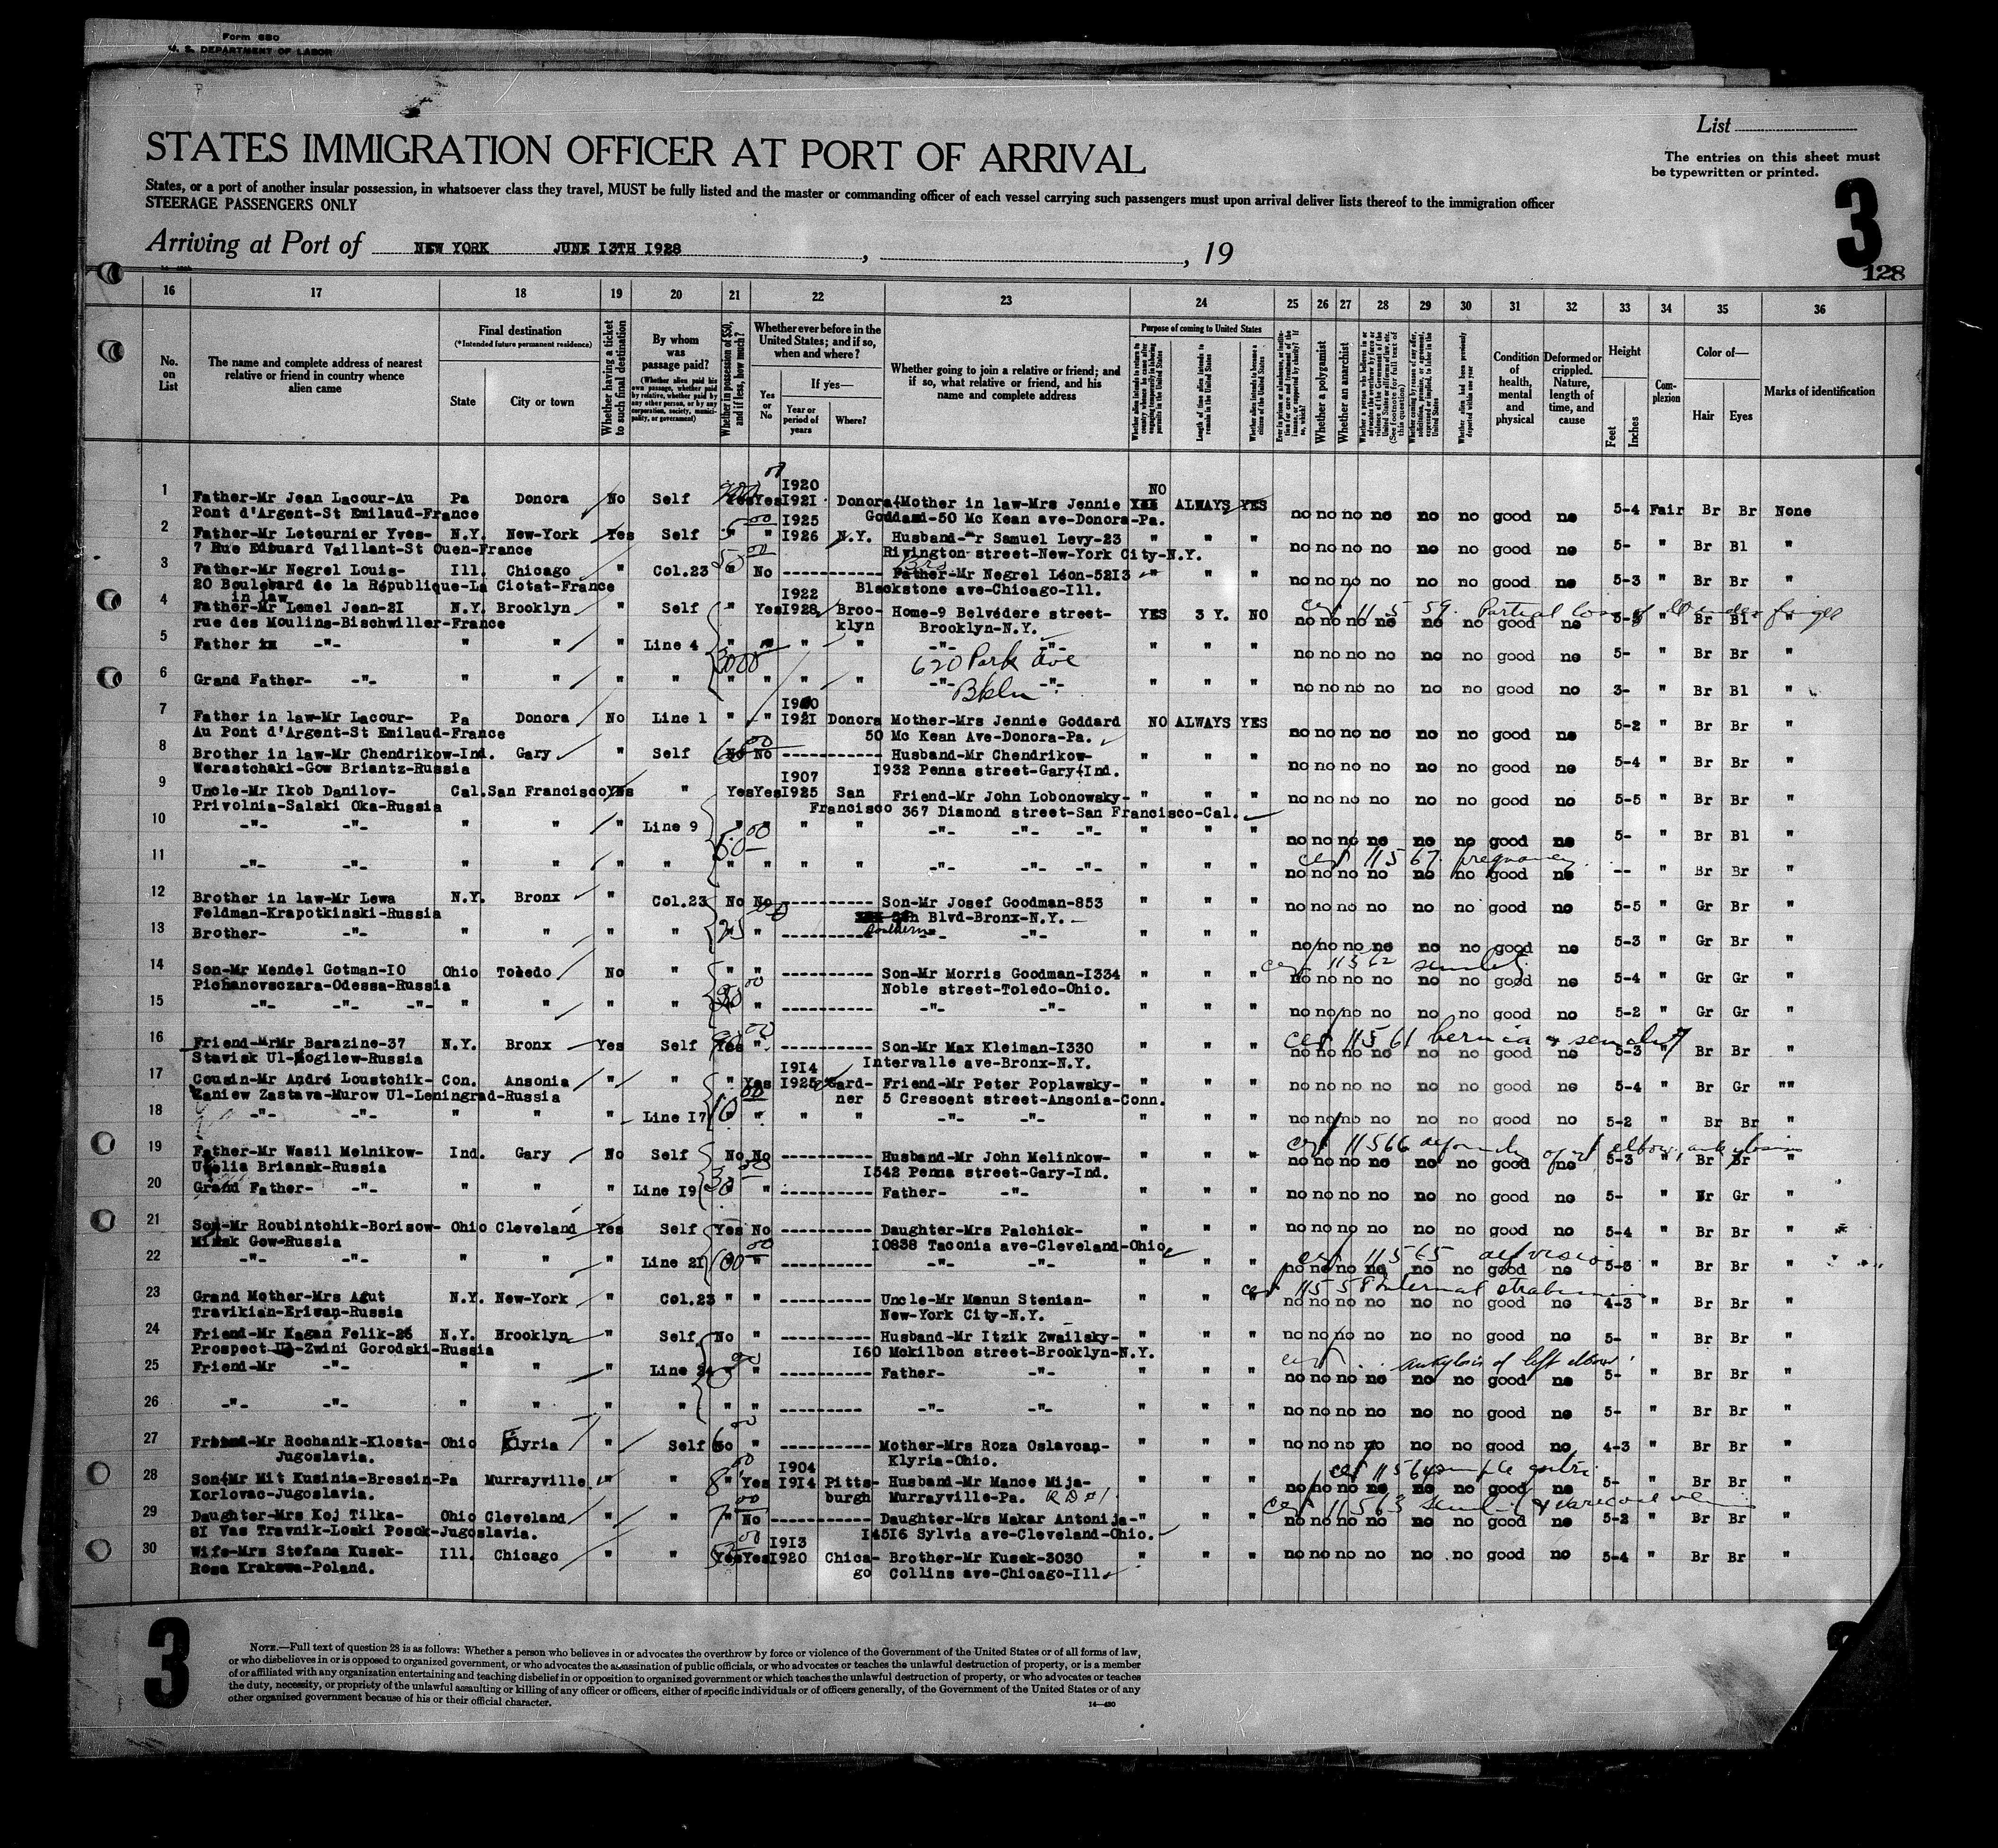 Form 680
U. S. DEPARTMENT OF LABOR
List
STATES IMMIGRATION OFFICER AT PORT OF ARRIVAL
The entries on this sheet must
be typewritten or printed.
States, or a port of another insular possession, in whatsoever class they travel, MUST be fully listed and the master or commanding officer of each vessel carrying such passengers must upon arrival deliver lists thereof to the immigration officer
STEERAGE PASSENGERS ONLY
3
Arriving at Port of NEW YORK JUNE 13TH 1928, , 19
128
16 17 18 19 20 21 22 23 24 25 26 27 28 29 30 31 32 33 34 35 36
No. on List
The name and complete address of nearest relative or friend in country whence alien came
Final destination
(*Intended future permanent residence)
State City or town
Whether having a ticket to such final destination
By whom was passage paid?
(Whether alien paid his own passage, whether paid by relative, whether paid by any other person, or by any corporation, society, municipality, or government)
Whether in possession of $50, and if less, how much?
Whether ever before in the United States; and if so, when and where?
Yes or No
If yes—
Year or period of years
Where?
Whether going to join a relative or friend; and if so, what relative or friend, and his name and complete address
Purpose of coming to United States
Length of time alien intends to remain in the United States
Whether alien intends to become a citizen of the United States
Whether a polygamist
Whether an anarchist
(See footnote for full text of this question)
Whether alien had been previously deported within one year
Condition of health, mental and physical
Deformed or crippled. Nature, length of time, and cause
Height
Feet Inches
Complexion
Color of—
Hair Eyes
Marks of identification
1920
NO
1 Father-Mr Jean Lacour-Au Pa Donora No Self Yes Yes 1921 Donora Mother in law-Mrs Jennie ALWAYS YES no no no no no no good no 5-4 Fair Br Br None
Pont d'Argent-St Emilaud-France Goddard-50 Mc Kean ave-Donora-Pa.
1925
2 Father-Mr Leteurnier Yves- N.Y. New-York Yes Self " " 1926 N.Y. Husband-Mr Samuel Levy-23 " " " no no no no no no good no 5- " Br Bl "
7 Rue Edouard Vaillant-St Ouen-France Rivington street-New-York City-N.Y.
3 Father-Mr Negrel Louis- Ill. Chicago " Col.23 " No ----------- Father-Mr Negrel Léon-5213 " " " no no no no no no good no 5-3 " Br Br "
20 Boulebard de la République-La Ciotat-France Blackstone ave-Chicago-Ill.
in law 1922
4 Father-Mr Lemel Jean-21 N.Y. Brooklyn " Self " Yes 1928 Broo- Home-9 Belvédere street- YES 3 Y. NO no no no no no no good no " Br Bl "
rue des Moulins-Bischwiller-France klyn Brooklyn-N.Y.
cert 11559. Partial loss of finger
5 Father -"- " " " Line 4 " " " " -"- -"- " " " no no no no no no good no 5- " Br Br "
3000
620 Park ave
Bkln
6 Grand Father- -"- " " " " " " " " -"- -"- " " " no no no no no no good no 3- " Br Bl "
7 Father in law-Mr Lacour- Pa Donora No Line 1 " " 1921 Donora Mother-Mrs Jennie Goddard NO ALWAYS YES 5-2 " Br Br "
Au Pont d'Argent-St Emilaud-France 50 Mc Kean Ave-Donora-Pa. no no no no no no good no
8 Brother in law-Mr Chendrikow- Ind. Gary " Self No No ---------- Husband-Mr Chendrikow- " " " no no no no no no good no 5-4 " Br Br "
Werastchaki-Gow Briantz-Russia 1932 Penna street-Gary-Ind.
1907
9 Uncle-Mr Ikob Danilov- Cal. San Francisco Yes " Yes Yes 1925 San Friend-Mr John Lobonowsky- " " " no no no no no no good no 5-5 " Br Br "
Privolnia-Salski Oka-Russia Francisco 367 Diamond street-San Francisco-Cal.
10 -"- -"- " " " Line 9 " " " " -"- -"- -"- " " " no no no no no no good no 5- " Br Bl "
cert 11567 pregnancy
11 -"- -"- " " " " " " " " -"- -"- -"- " " " no no no no no no good no -- " Br Br "
12 Brother in law-Mr Lewa N.Y. Bronx " Col.23 No No ---------- Son-Mr Josef Goodman-853 " " " no no no no no no good no 5-5 " Gr Br "
Feldman-Krapotkinski-Russia Blvd-Bronx-N.Y.
Southern
13 Brother- -"- " " " " " " ---------- -"- -"- " " " no no no no no no good no 5-3 " Gr Br "
cert 11562 senility
14 Son-Mr Mendel Gotman-10 Ohio Toledo No " " " ---------- Son-Mr Morris Goodman-1334 " " " no no no no no no good no 5-4 " Gr Gr "
Pichanovsczara-Odessa-Russia Noble street-Toledo-Ohio.
15 -"- -"- -"- " " " " " " ---------- -"- -"- " " " no no no no no no good no 5-2 " Gr Gr "
cert 11561 hernia & senility
16 Friend-Mr Barazine-37 N.Y. Bronx Yes Self Yes " Son-Mr Max Kleiman-1330 " " " no no no no no no good no 5-3 " Br Br "
Stavisk Ul-Mogilew-Russia Intervalle ave-Bronx-N.Y.
1914
17 Cousin-Mr André Loustchik- Con. Ansonia " " " Yes 1925 Gard- Friend-Mr Peter Poplawsky- " " " no no no no no no good no 5-4 " Br Gr ""
Zaniew Zastava-Murow Ul-Leningrad-Russia ner 5 Crescent street-Ansonia-Conn.
18 -"- -"- " " " Line 17 " " " -"- -"- " " " no no no no no no good no 5-2 " Br Br "
cert 11566 deformity of rt elbow, ankylosis
19 Father-Mr Wasil Melnikow- Ind. Gary No Self No No ---------- Husband-Mr John Melinkow- " " " no no no no no no good no 5-3 " Br Br "
Briansk-Russia 1542 Penna street-Gary-Ind.
20 Grand Father- -"- " " " Line 19 " ---------- Father- -"- " " " no no no no no no good no 5- " Gr "
21 Son-Mr Roubintchik-Borisow- Ohio Cleveland Yes Self Yes No ---------- Daughter-Mrs Palchick- " " " no no no no no no good no 5-4 " Br Br "
Minsk Gow-Russia 10838 Taconia ave-Cleveland-Ohio
22 -"- -"- " " " Line 21 " ---------- -"- -"- " " " no no no no no no good no 5-3 " Br Br "
cert 11565
cert 11558 Internal strabismus
23 Grand Mother-Mrs Agut N.Y. New-York " Col.23 " " ---------- Uncle-Mr Manun Stenian- " " " no no no no no no good no 4-3 " Br Br "
Travikian-Eriwan-Russia New-York City-N.Y.
24 Friend-Mr Kagan Felik-26 N.Y. Brooklyn " Self No " ---------- Husband-Mr Itzik Zwailsky- " " " no no no no no no good no 5- " Br Br "
Prospect Ul-Zwini Gorodski-Russia 160 Mckilbon street-Brooklyn-N.Y.
cert ankylosis of left elbow
25 Friend-Mr -"- " " " Line 24 " " ---------- Father- -"- " " " no no no no no no good no 5- " Br Br "
26 -"- -"- " " " " " " --------- -"- -"- " " " no no no no no no good no 5- " Br Br "
27 Friend-Mr Rochanik-Klosta- Ohio Elyria " Self " ---------- Mother-Mrs Roza Oslavcan- " " " no no no no no no good no 4-3 " Br Br "
Jugoslavia. Klyria-Ohio.
1904
28 Son-Mr Mit Kusinia-Bresein- Pa Murrayville " " " Yes 1914 Pitts- Husband-Mr Mance Mija- " " " no no no no no no good no 5- " Br Br "
Korlovac-Jugoslavia. burgh Murrayville-Pa. RD #1
cert 11564
cert 11563 senility & varicose veins
29 Daughter-Mrs Koj Tilka- Ohio Cleveland " " " No ---------- Daughter-Mrs Makar Antonija- " " " no no no no no no good no 5-2 " Br Br "
81 Vas Travnik-Loski Posok-Jugoslavia. 14516 Sylvia ave-Cleveland-Ohio.
1913
30 Wife-Mrs Stefana Kusek- Ill. Chicago " " Yes Yes 1920 Chica- Brother-Mr Kusek-3030 " " " no no no no no no good no 5-4 " Br Br "
Rosa Krakowa-Poland. go Collins ave-Chicago-Ill.
3
NOTE.—Full text of question 28 is as follows: Whether a person who believes in or advocates the overthrow by force or violence of the Government of the United States or of all forms of law,
or who disbelieves in or is opposed to organized government, or who advocates the assassination of public officials, or who advocates or teaches the unlawful destruction of property, or is a member
of or affiliated with any organization entertaining and teaching disbelief in or opposition to organized government or which teaches the unlawful destruction of property, or who advocates or teaches
the duty, necessity, or propriety of the unlawful assaulting or killing of any officer or officers, either of specific individuals or of officers generally, of the Government of the United States or of any
other organized government because of his or their official character.
14—430